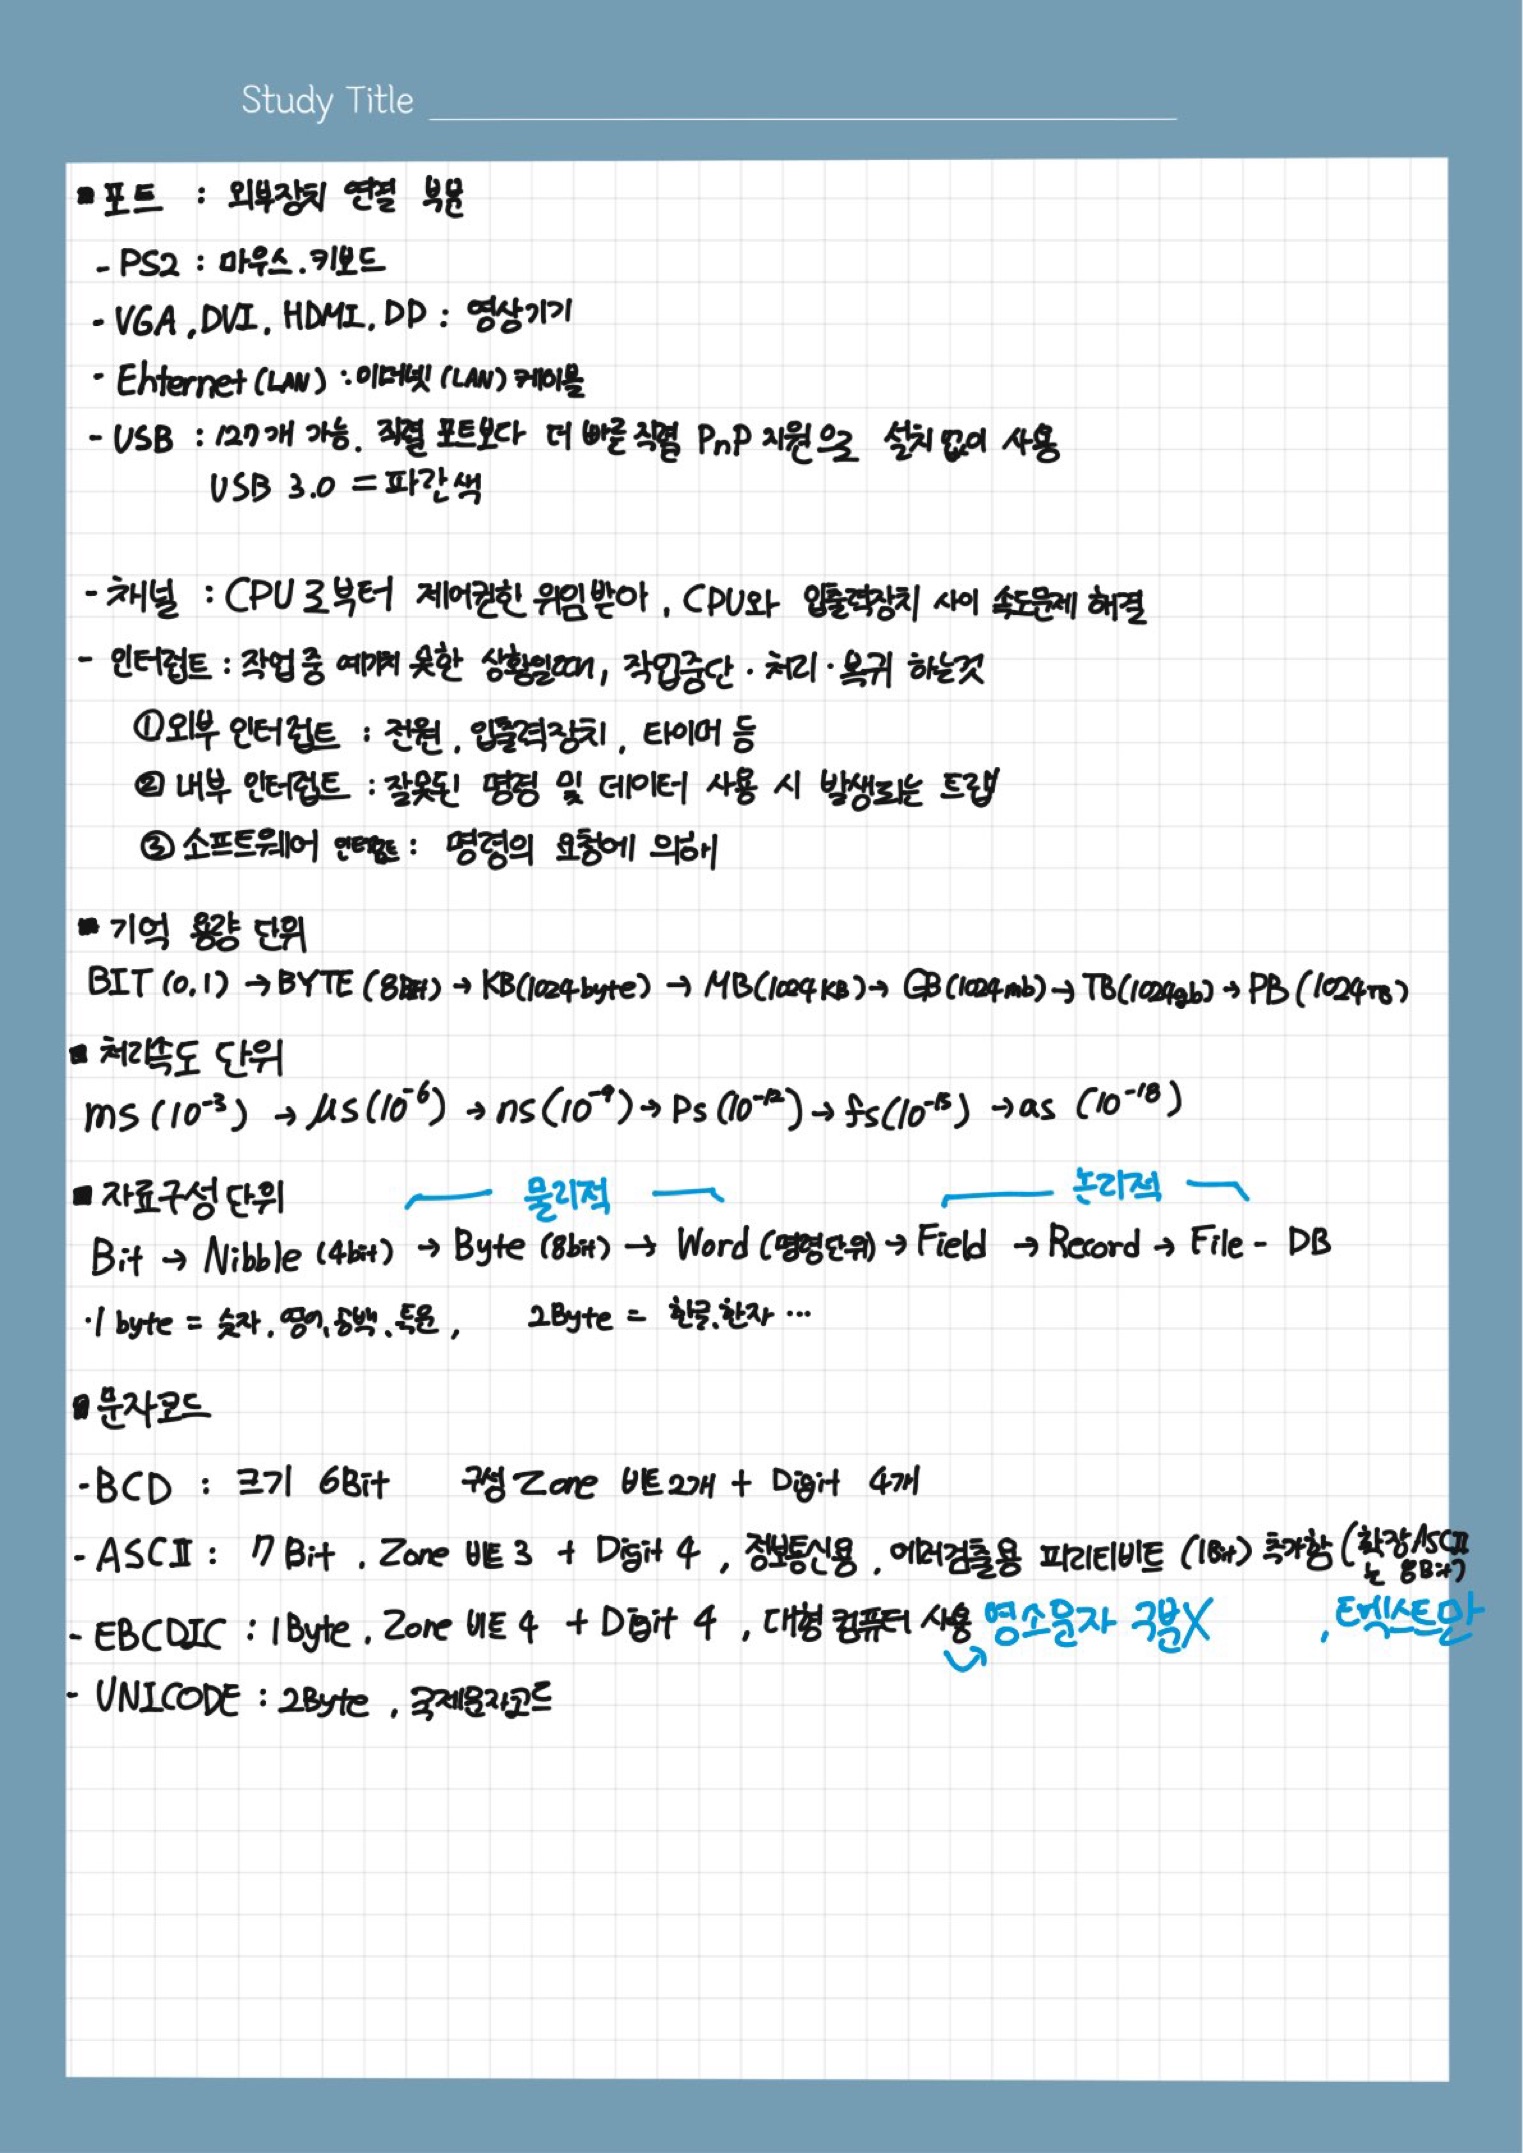 Study Title
▪포트 : 외부장치 연결 부분
- PS2 : 마우스.키보드
- VGA, DVI, HDMI, DP : 영상기기
- Ehternet (LAN) : 이더넷 (LAN) 케이블
- USB : 127개 가능. 직렬 포트보다 더 빠른 직렬 PnP 지원으로 설치 없이 사용
USB 3.0 = 파란색
- 채널 : CPU로부터 제어권한 위임받아, CPU와 입출력장치 사이 속도문제 해결
- 인터럽트 : 작업 중 예기치 못한 상황일때, 작업중단·처리·복귀 하는것
① 외부 인터럽트 : 전원, 입출력장치, 타이머 등
② 내부 인터럽트 : 잘못된 명령 및 데이터 사용 시 발생되는 트랩
③ 소프트웨어 인터럽트 : 명령의 요청에 의해
▪기억 용량 단위
BIT (0,1) → BYTE (8Bit) → KB(1024byte) → MB(1024KB) → GB(1024mb) → TB(1024gb) → PB (1024TB)
▪처리속도 단위
ms (10⁻³) → μs(10⁻⁶) → ns(10⁻⁹) → Ps(10⁻¹²) → fs(10⁻¹⁵) → as (10⁻¹⁸)
▪자료구성단위 물리적 논리적
Bit → Nibble (4bit) → Byte (8bit) → Word (명령단위) → Field → Record → File - DB
·1 byte = 숫자, 영어, 공백, 특문, 2Byte = 한글, 한자 ···
▪문자코드
- BCD : 크기 6Bit 구성 Zone 비트2개 + Digit 4개
- ASCⅡ : 7 Bit, Zone 비트 3 + Digit 4, 정보통신용, 에러검출용 패리티비트 (1Bit) 추가함 (확장ASCⅡ
는 8Bit)
- EBCDIC : 1Byte, Zone 비트 4 + Digit 4, 대형 컴퓨터 사용 영소문자 구분X , 텍스트만
- UNICODE : 2Byte, 국제문자코드